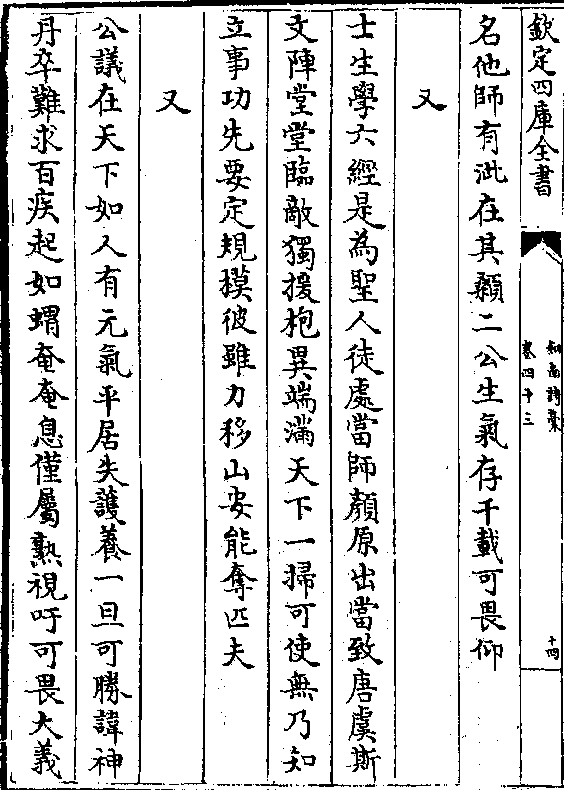 欽定四庫全書
卷四十三
十四
名他師有泚在其顙二公生氣存千載可畏仰
又
士生學六經是為聖人徒處當師顏原出當致唐虞斯
文陣堂堂臨敵獨援枹異端滿天下一掃可使無乃知
立事功先要定規摸彼雖力移山安能奪匹夫
又
公議在天下如人有元氣平居失護養一旦可勝諱神
丹卒難求百疾起如蝟奄奄息僅屬熟視吁可畏大義